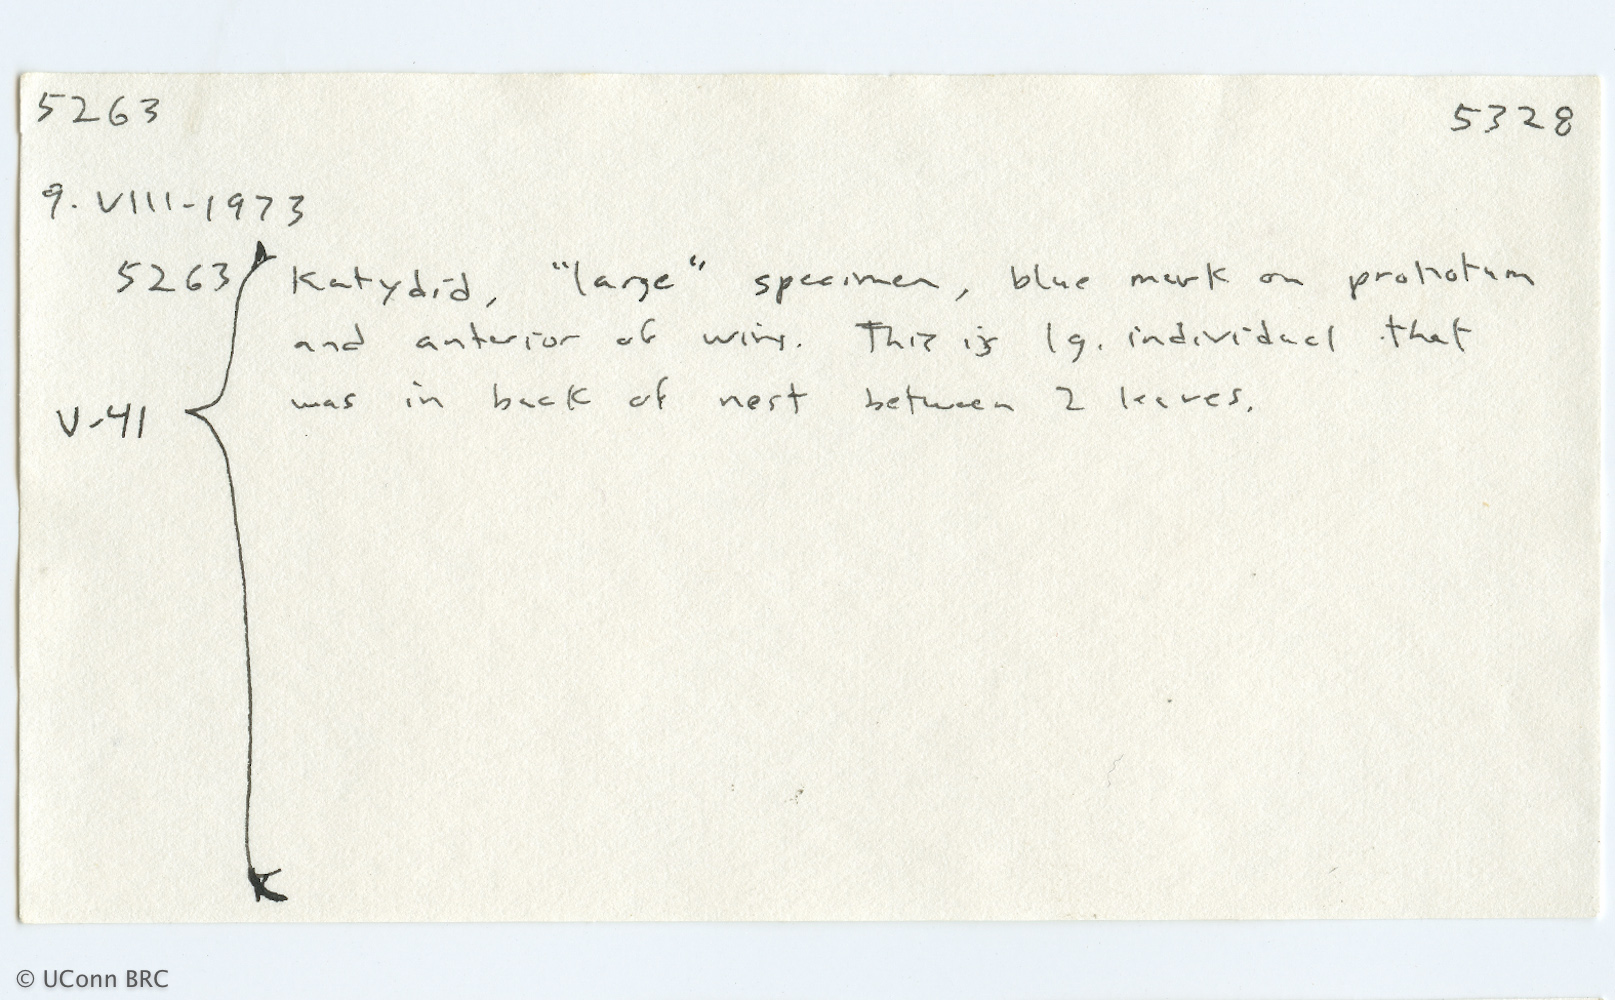 5263 5328
9. VIII-1973
5263 Katydid, "large" specimen, blue mark on pronotum
and anterior of wing. This is lg. individual that
V-41 was in back of nest between 2 leaves.
© UConn BRC